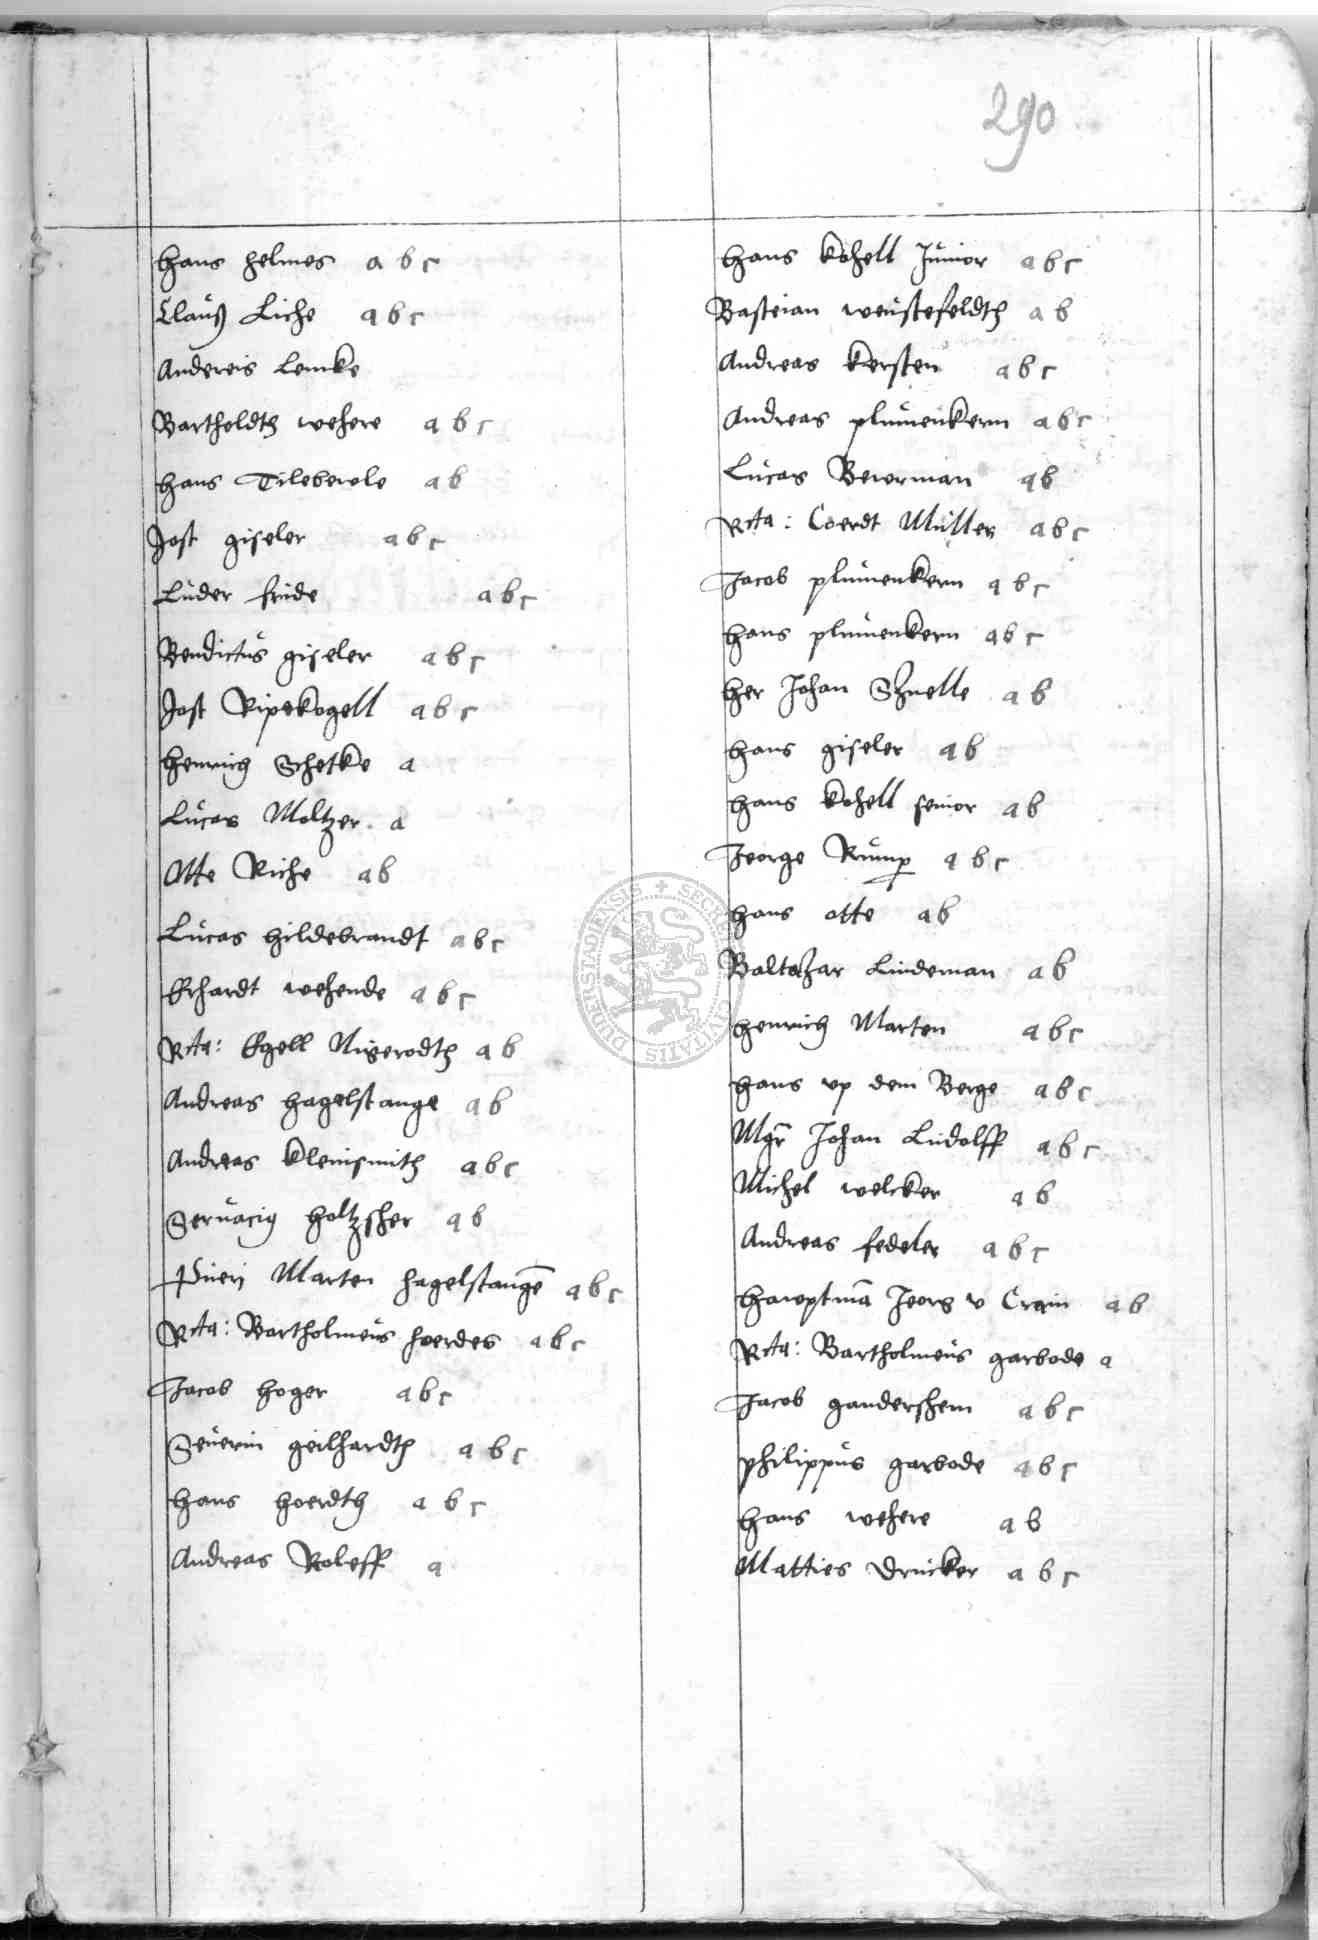 290
Hans Helmes a b c
Clauß Liche a b c
Andereis Lemke
Bartholdth Wehere a b c
Hans Tilebewle a b
Jost Giseler a b c
Lüder frůde a b c
Bendictus Giseler a b c
Jost Ripekogell a b c
Henrich Schetke a
Lucas Moltzer a
Otte Riche a b
Lucas Hildebrandt a b c
Erhardt Wehende a b c
Rcta: Egell Nigerodth a b
Andreas Hagelstange a b
Andreas Klensmith a b c
Seruaciq Holtzscher a b
Pueri Marten Hagelstangē a b c
Rcta: Bartholmeus Hoerdes a b c
Jacob Hoger a b c
Seuerin Geilhardth a b c
Hans Hoerdth a b c
Andreas Roleff a
Hans Kohell Junior a b c
Basteian Weustefeldth a b
Andreas Kersten a b c
Andreas plumenkern a b c
Lucas Bewerman a b
Rcta: Coerdt Müller a b c
Jacob plumenkern a b c
Hans plumenkern a b c
Her Johan Schnelle a b
Hans Giseler a b
Hans Kohell senior a b
Jeorge Rump a b c
Hans Otte a b
Baltazar Lindeman a b
Henrich Marten a b c
Hans vp dem Berge a b c
Mgr Johan Ludolff a b c
Michel Welcker a b
Andreas fedeler a b c
Hawptmā Jeorg v Cram a b
Rcta: Bartholmeus Garbode a
Jacob Gandershem a b c
philippus Garbode a b c
Hans Wehere a b
Matties Drucker a b c
SECRET CIVITATIS DUDERSTADIENSIS